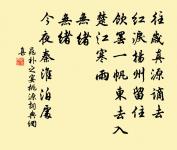 往歲真源謫去
紅淚揚州留住
飲罷一帆東去入
楚江寒雨
無緒
無緒
今夜秦淮泊處
晁補之宴桃源詞典網